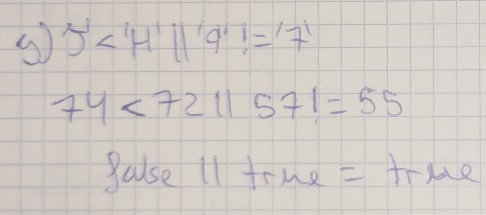 g) 'J' < 'H' || '9' != '7'
74 < 72 || 57 != 55
false || true = true